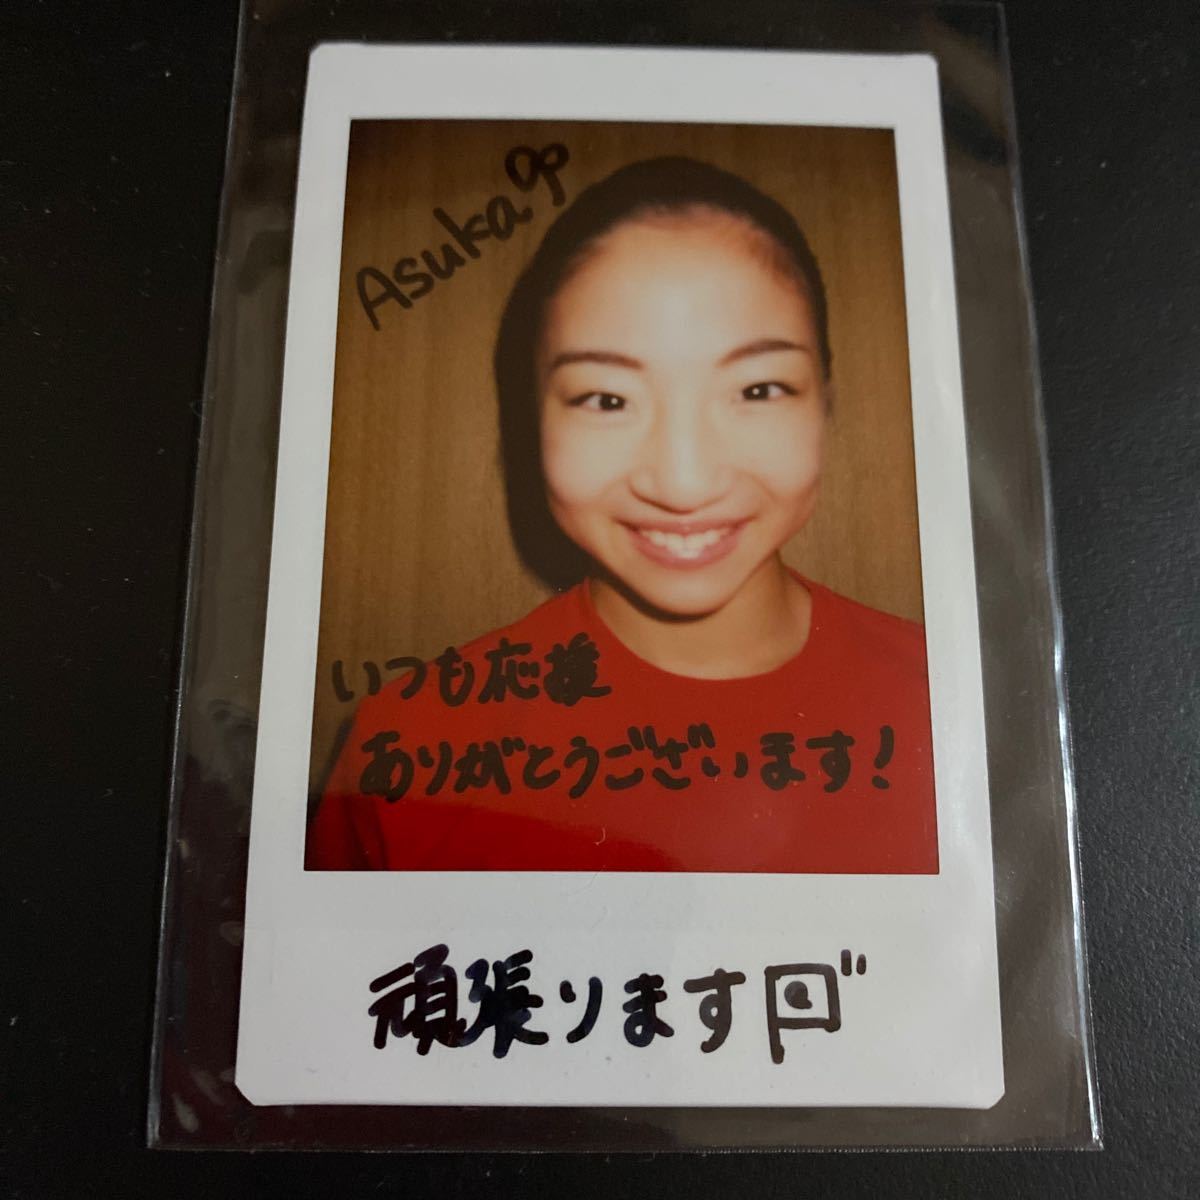 Asuka
いつも応援
ありがとうございます！
頑張ります